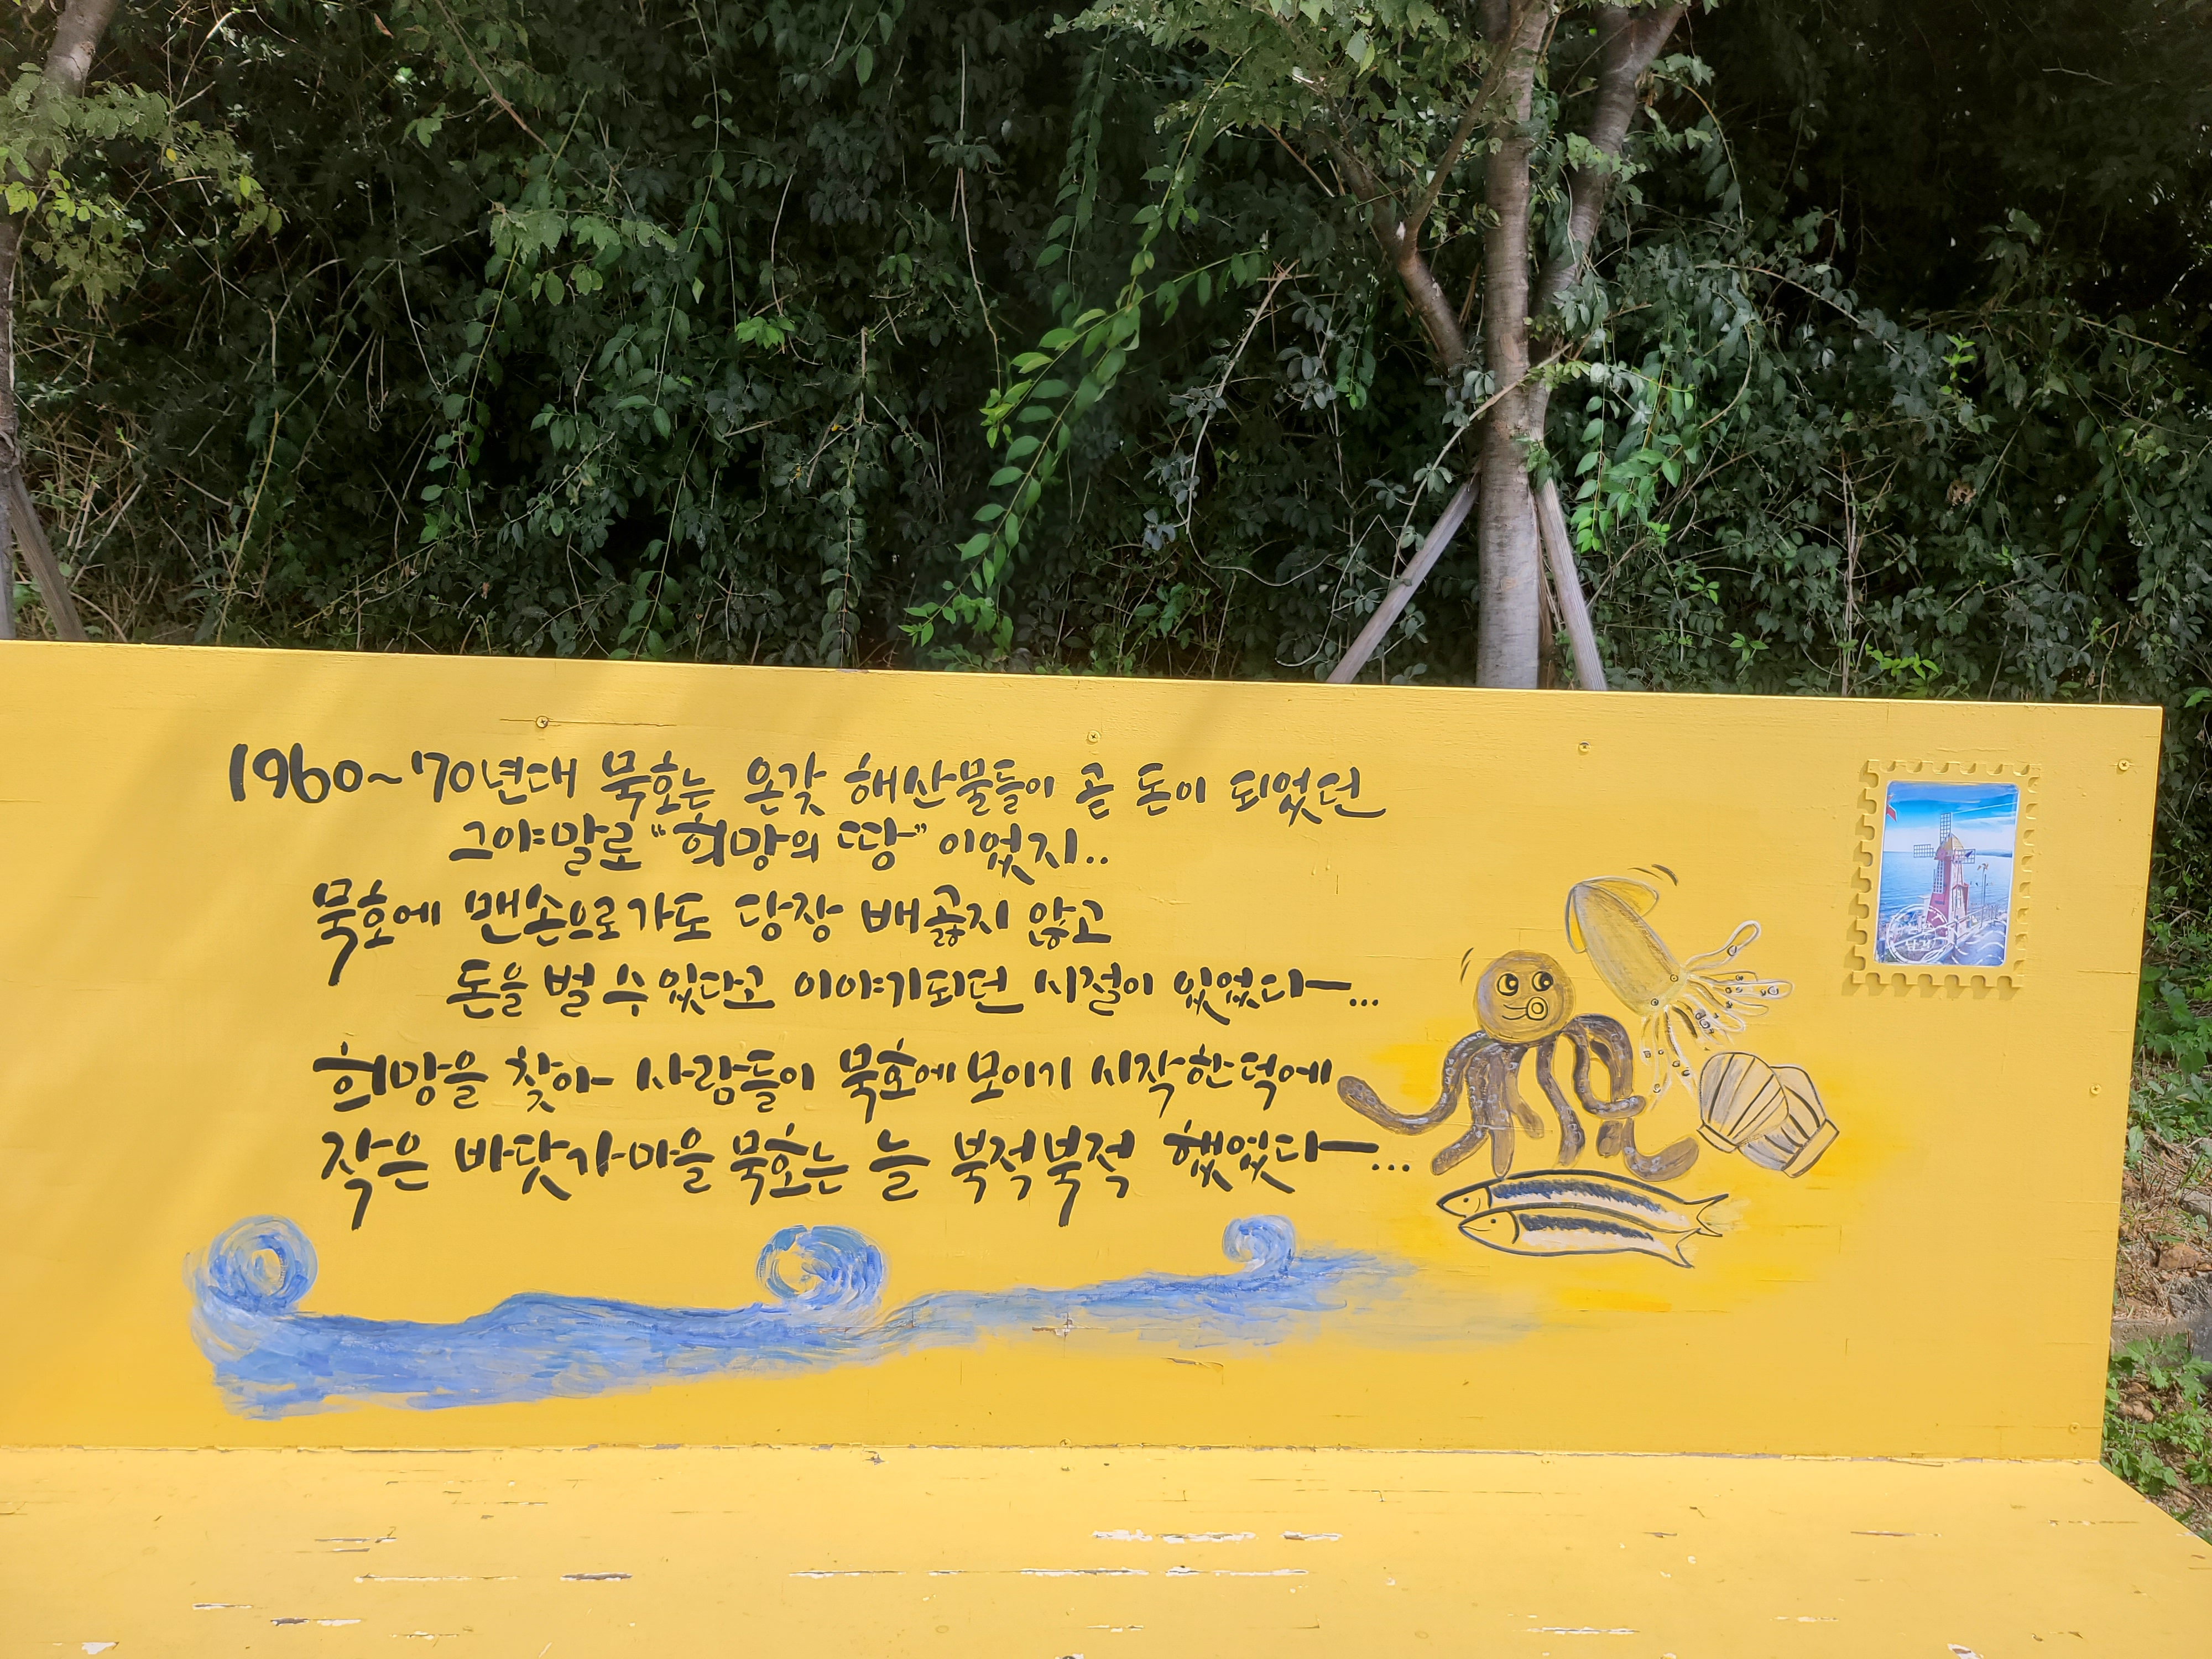 1960~'70년대 묵호는 온갖 해산물들이 곧 돈이 되었던
그야말로 "희망의 땅" 이었지..
묵호에 맨손으로가도 당장 배곯지 않고
돈을 벌 수 있다고 이야기되던 시절이 있었다...
희망을 찾아 사람들이 묵호에 모이기 시작한덕에
작은 바닷가마을 묵호는 늘 북적북적 했었다...